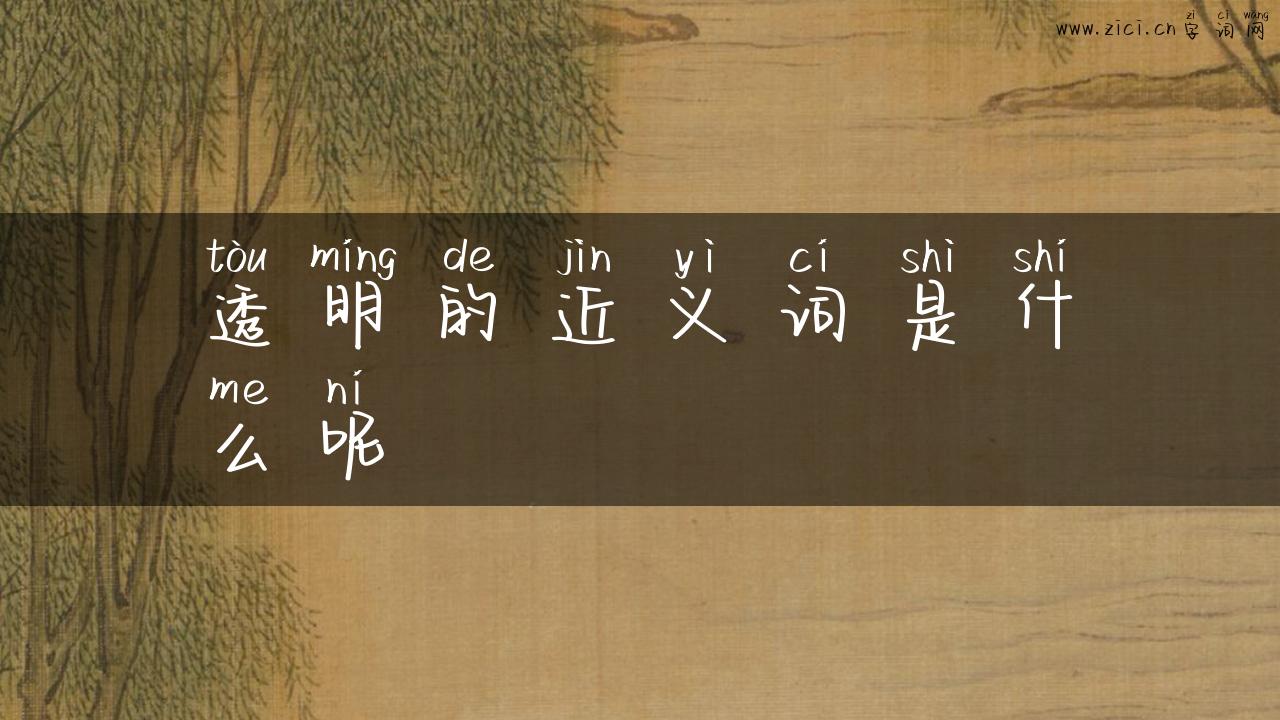 zì cí wǎng
www.zici.cn 字词网
tòu míng de jìn yì cí shì shí
透明的近义词是什
me ní
么呢